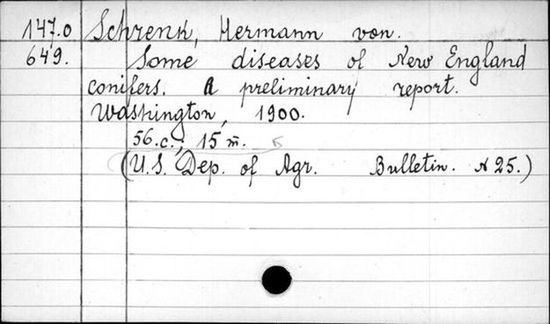 147.0 Schrenk, Hermann von.
649. Some diseases of New England
conifers. A preliminary report.
Washington, 1900.
56.c.; 15 т.
(U.S. Dep. of Agr. Bulletin. N 25.)